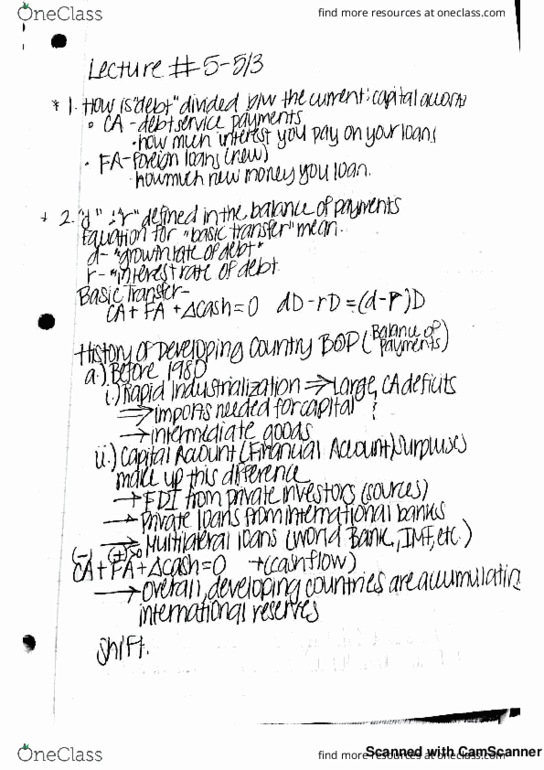 OneClass
find more resources at oneclass.com
Lecture #5-5/3
* 1. How is "debt" divided b/w the current & capital accounts
• CA - debt service payments
• how much interest you pay on your loans
• FA - foreign loans (new)
• how much new money you loan.
* 2. "d" & "r" defined in the balance of payments
Equation for "basic transfer" mean.
d - "growth rate of debt"
r - "interest rate of debt
Basic Transfer -
CA + FA + Δcash = 0 dD - rD = (d-r)D
History of Developing Country BOP (Balance of
payments)
a.) Before 1980
i.) Rapid Industrialization ⇒ Large, CA deficits
⇒ imports needed for capital &
→ intermediate goods
ii.) Capital Account (Financial Account) surpluses
make up this difference
→ FDI from private investors (sources)
→ Private loans from international banks
→ Multilateral loans (World Bank, IMF, etc.)
(-) (+)
CA + FA + Δcash = 0 + (cashflow)
→ Overall, developing countries are accumulatin
international reserves
Shift.
OneClass
find more resources at oneclass.com
Scanned with CamScanner